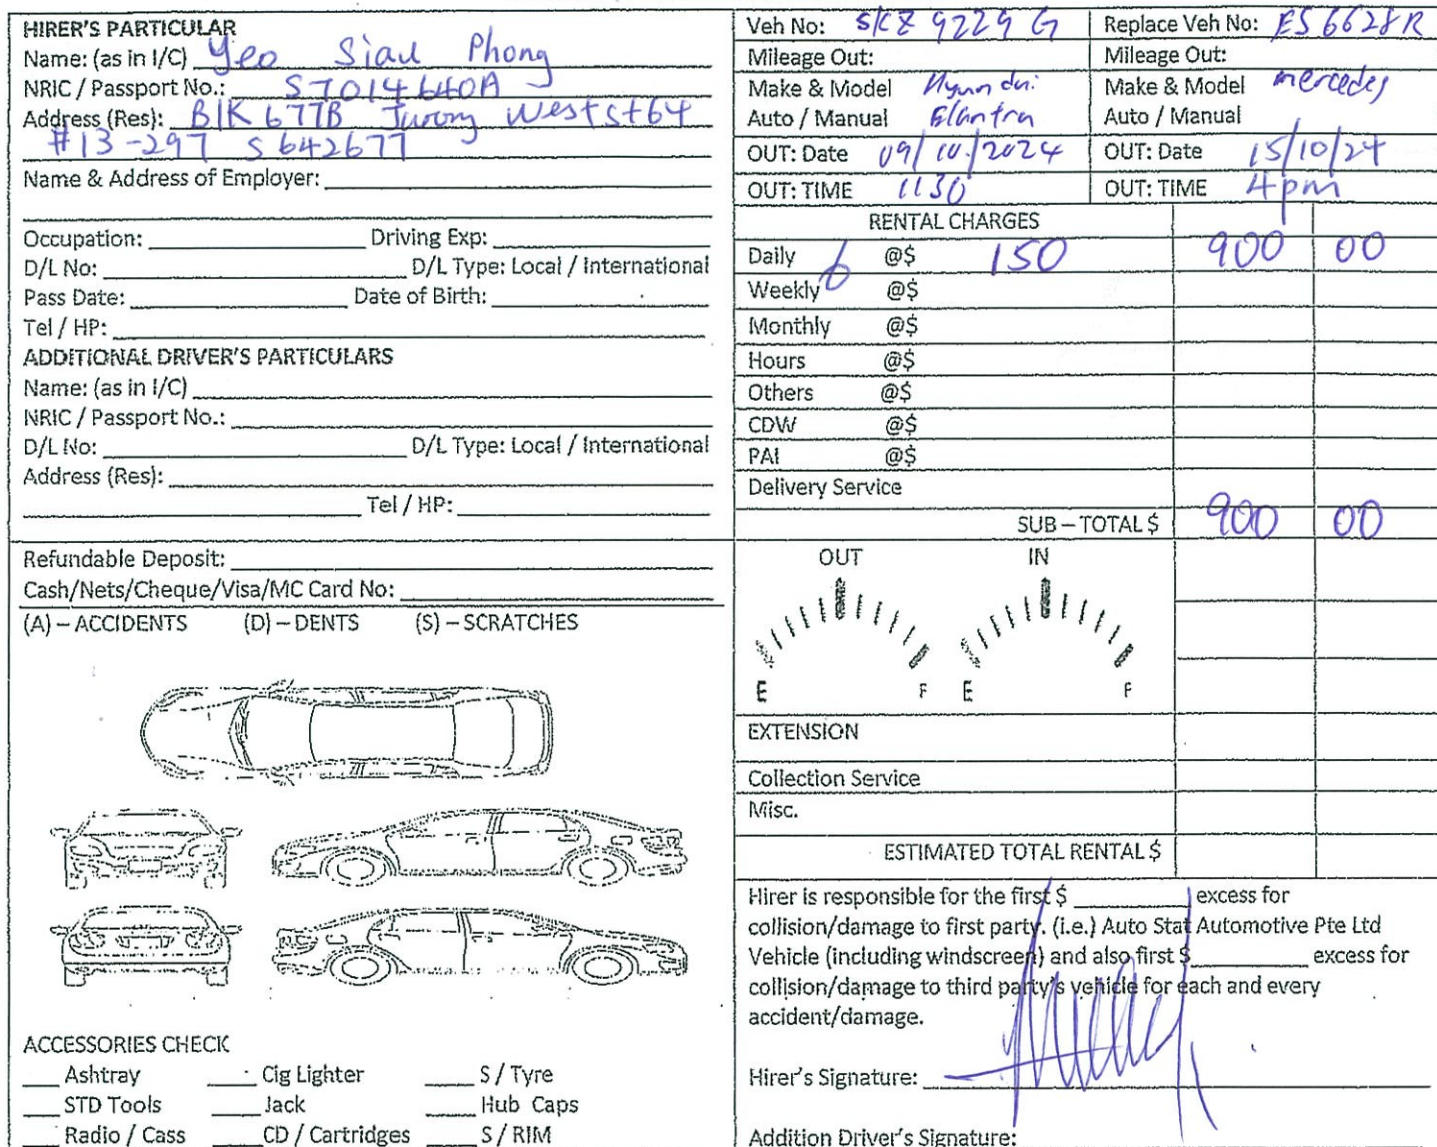 HIRER'S PARTICULAR
Name: (as in I/C) Yeo Siau Phong
NRIC / Passport No.: S7014640A
Address (Res): Blk 677B Jurong West St 64
#13-297 S 642677
Name & Address of Employer:
Occupation: Driving Exp:
D/L No: D/L Type: Local / International
Pass Date: Date of Birth:
Tel / HP:
ADDITIONAL DRIVER'S PARTICULARS
Name: (as in I/C)
NRIC / Passport No.:
D/L No: D/L Type: Local / International
Address (Res):
Tel / HP:
Refundable Deposit:
Cash/Nets/Cheque/Visa/MC Card No:
(A) – ACCIDENTS (D) – DENTS (S) – SCRATCHES
ACCESSORIES CHECK
Ashtray Cig Lighter S / Tyre
STD Tools Jack Hub Caps
Radio / Cass CD / Cartridges S / RIM
Veh No: SKZ 9229 G Replace Veh No: ES 6628R
Mileage Out: Mileage Out:
Make & Model Hyundai Make & Model mercedes
Auto / Manual Elantra Auto / Manual
OUT: Date 09/10/2024 OUT: Date 15/10/24
OUT: TIME 1130 OUT: TIME 4pm
RENTAL CHARGES
Daily 6 @$ 150 900 00
Weekly @$
Monthly @$
Hours @$
Others @$
CDW @$
PAI @$
Delivery Service
SUB – TOTAL $ 900 00
OUT IN
E F E F
EXTENSION
Collection Service
Misc.
ESTIMATED TOTAL RENTAL $
Hirer is responsible for the first $ excess for
collision/damage to first party. (i.e.) Auto Stat Automotive Pte Ltd
Vehicle (including windscreen) and also first $ excess for
collision/damage to third party's vehicle for each and every
accident/damage.
Hirer's Signature:
Addition Driver's Signature: